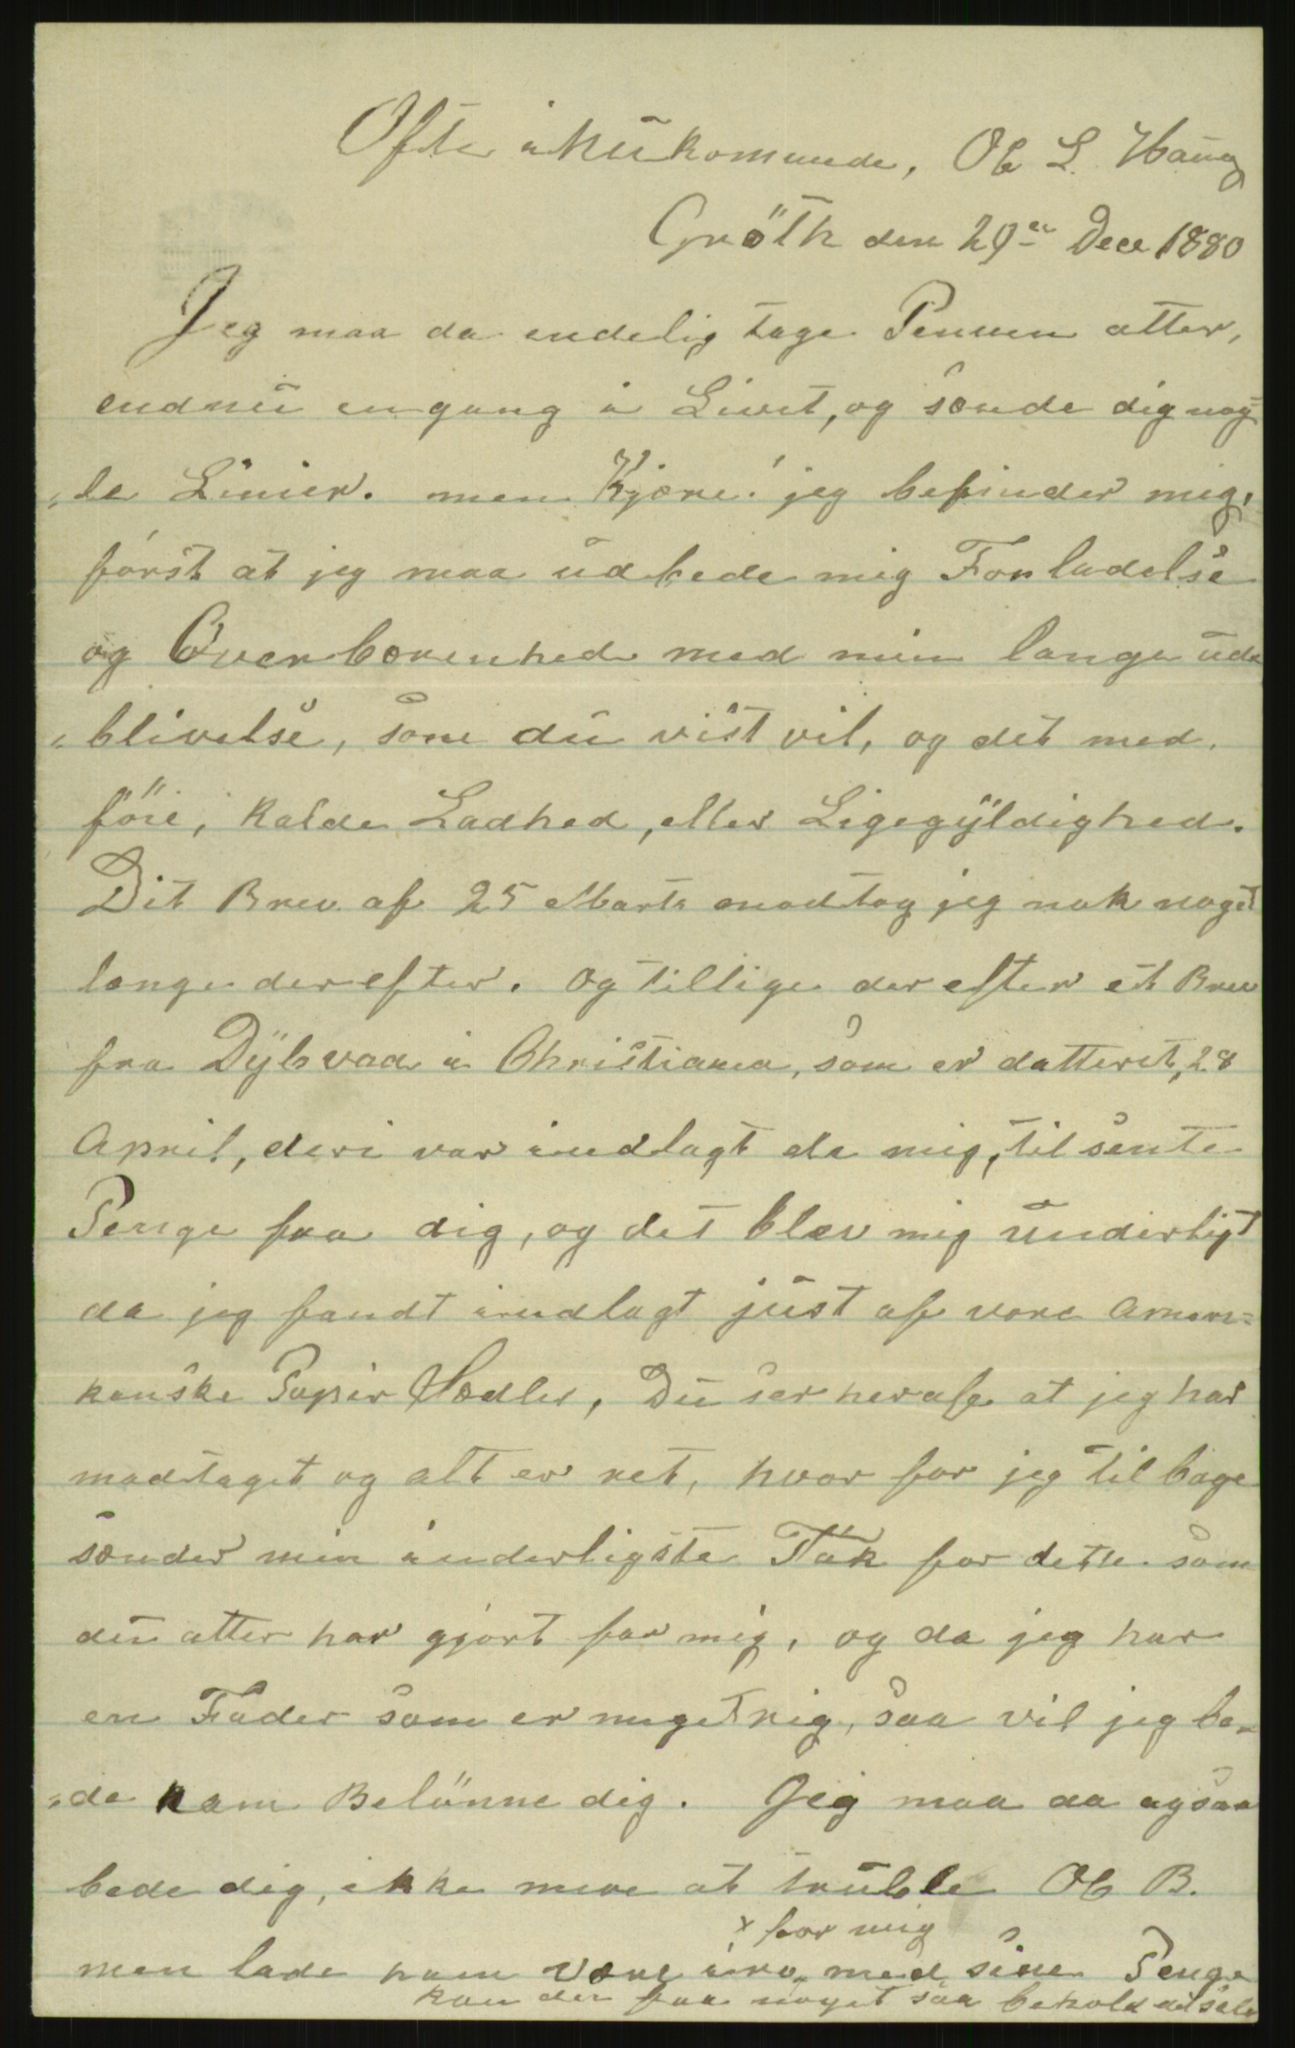 Ofte i kü komunde, Ole L. Haug
Gröth den 29de Dece 1880
Jeg maa da endelig tage Pennen atter,
endnu engang i Livet, og sænde dig nog-
-le Linier. men Kjære! jeg befinder mig,
först at jeg maa udbede mig Forladelse
og Overbærenhed med min lange ude
-blivelse, som du vist vil, og det med
föie, kalde Ladhed, eller Ligegÿldighed.
Dit Brev af 25 Marts modtog jeg nok noget
længe derefter. og tillige derefter et Brev
fra Dÿbvad i Christiania, som er datteret, 28
April, deri var indlagt de mig, tilsente
Penge fra dig, og det blev mig underligt
da jeg fandt indlagt just af vore Ameri=
kanske Papir Sædler, Du ser heraf at jeg har
modtaget og alt er ret, hvor for jeg tilbage
sænder min inderligste Tak for dette som
du atter har gjort for mig, og da jeg har
en Fader som er meget rig, saa vil jeg be-
-de ham Belönne dig. Jeg maa da ogsaa
bede dig, ikke mere at truble Ole B.
x for mig
men lade ham være i ro med sine Penge
kan der faa noget saa behold det selv